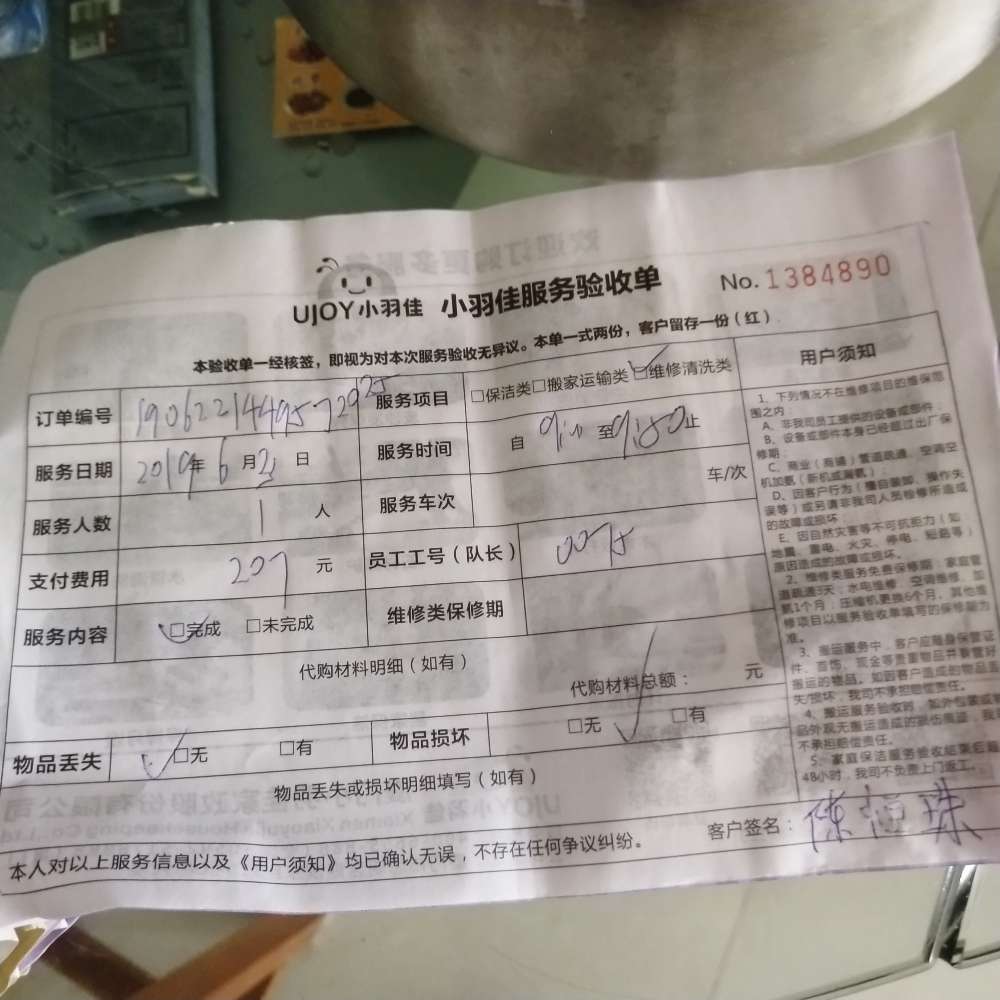 UJOY小羽佳 小羽佳服务验收单 No.1384890
本验收单一经核签，即视为对本次服务验收无异议。本单一式两份，客户留存一份（红）
订单编号 服务项目 □保洁类□搬家运输类□维修清洗类
服务日期 2019年6月 日 服务时间 自 至9:50止
服务人数 1 人 服务车次 车/次
支付费用 207 元 员工工号（队长） 0075
服务内容 □完成 □未完成 维修类保修期
代购材料明细（如有）
代购材料总额： 元
物品丢失 □无 □有 物品损坏 □无 □有
物品丢失或损坏明细填写（如有）
本人对以上服务信息以及《用户须知》均已确认无误，不存在任何争议纠纷。 客户签名：陈 珠
用户须知
1、下列情况不在维修项目的维保范
围之内：
A、非我司员工提供的设备或部件；
B、设备或部件本身已经超过出厂保
修期；
C、商业（商铺）管道疏通、空调空
机加氨（新机或漏氨）；
D、因客户行为（擅自装卸、操作失
误等）或另请非我司人员检修所造成
的故障或损坏；
E、因自然灾害等不可抗拒力（如
地震、雷电、火灾、停电、短路等）
原因造成的故障或损坏。
2、维修类服务免费保修期：家庭管
道疏通3天；水电维修、空调维修、加
氨1个月；压缩机更换6个月，其他维
修项目以服务验收单填写的保修期为
准。
3、搬运服务中，客户应随身保管证
件、首饰、现金等贵重物品并看管好
搬运的物品。如因客户造成的物品丢
失/损坏，我司不承担赔偿责任。
4、搬运服务验收时，如外包装或物
品外观无搬运造成的损伤痕迹，我司
不承担赔偿责任。
5、家庭保洁服务验收结束后超
48小时，我司不负责上门返工。